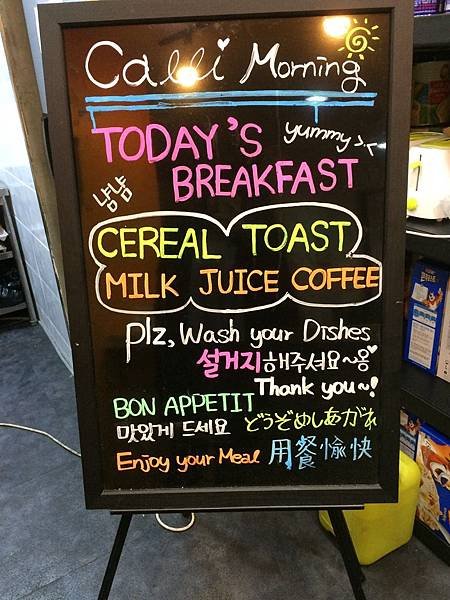 Calli Morning
TODAY'S
yummy ><
BREAKFAST
냠냠
CEREAL TOAST
MILK JUICE COFFEE
plz, Wash your Dishes
설거지해주셔요~용♥
Thank you~!
BON APPETIT
맛있게 드세요 どうぞめしあがれ
Enjoy your Meal 用餐愉快